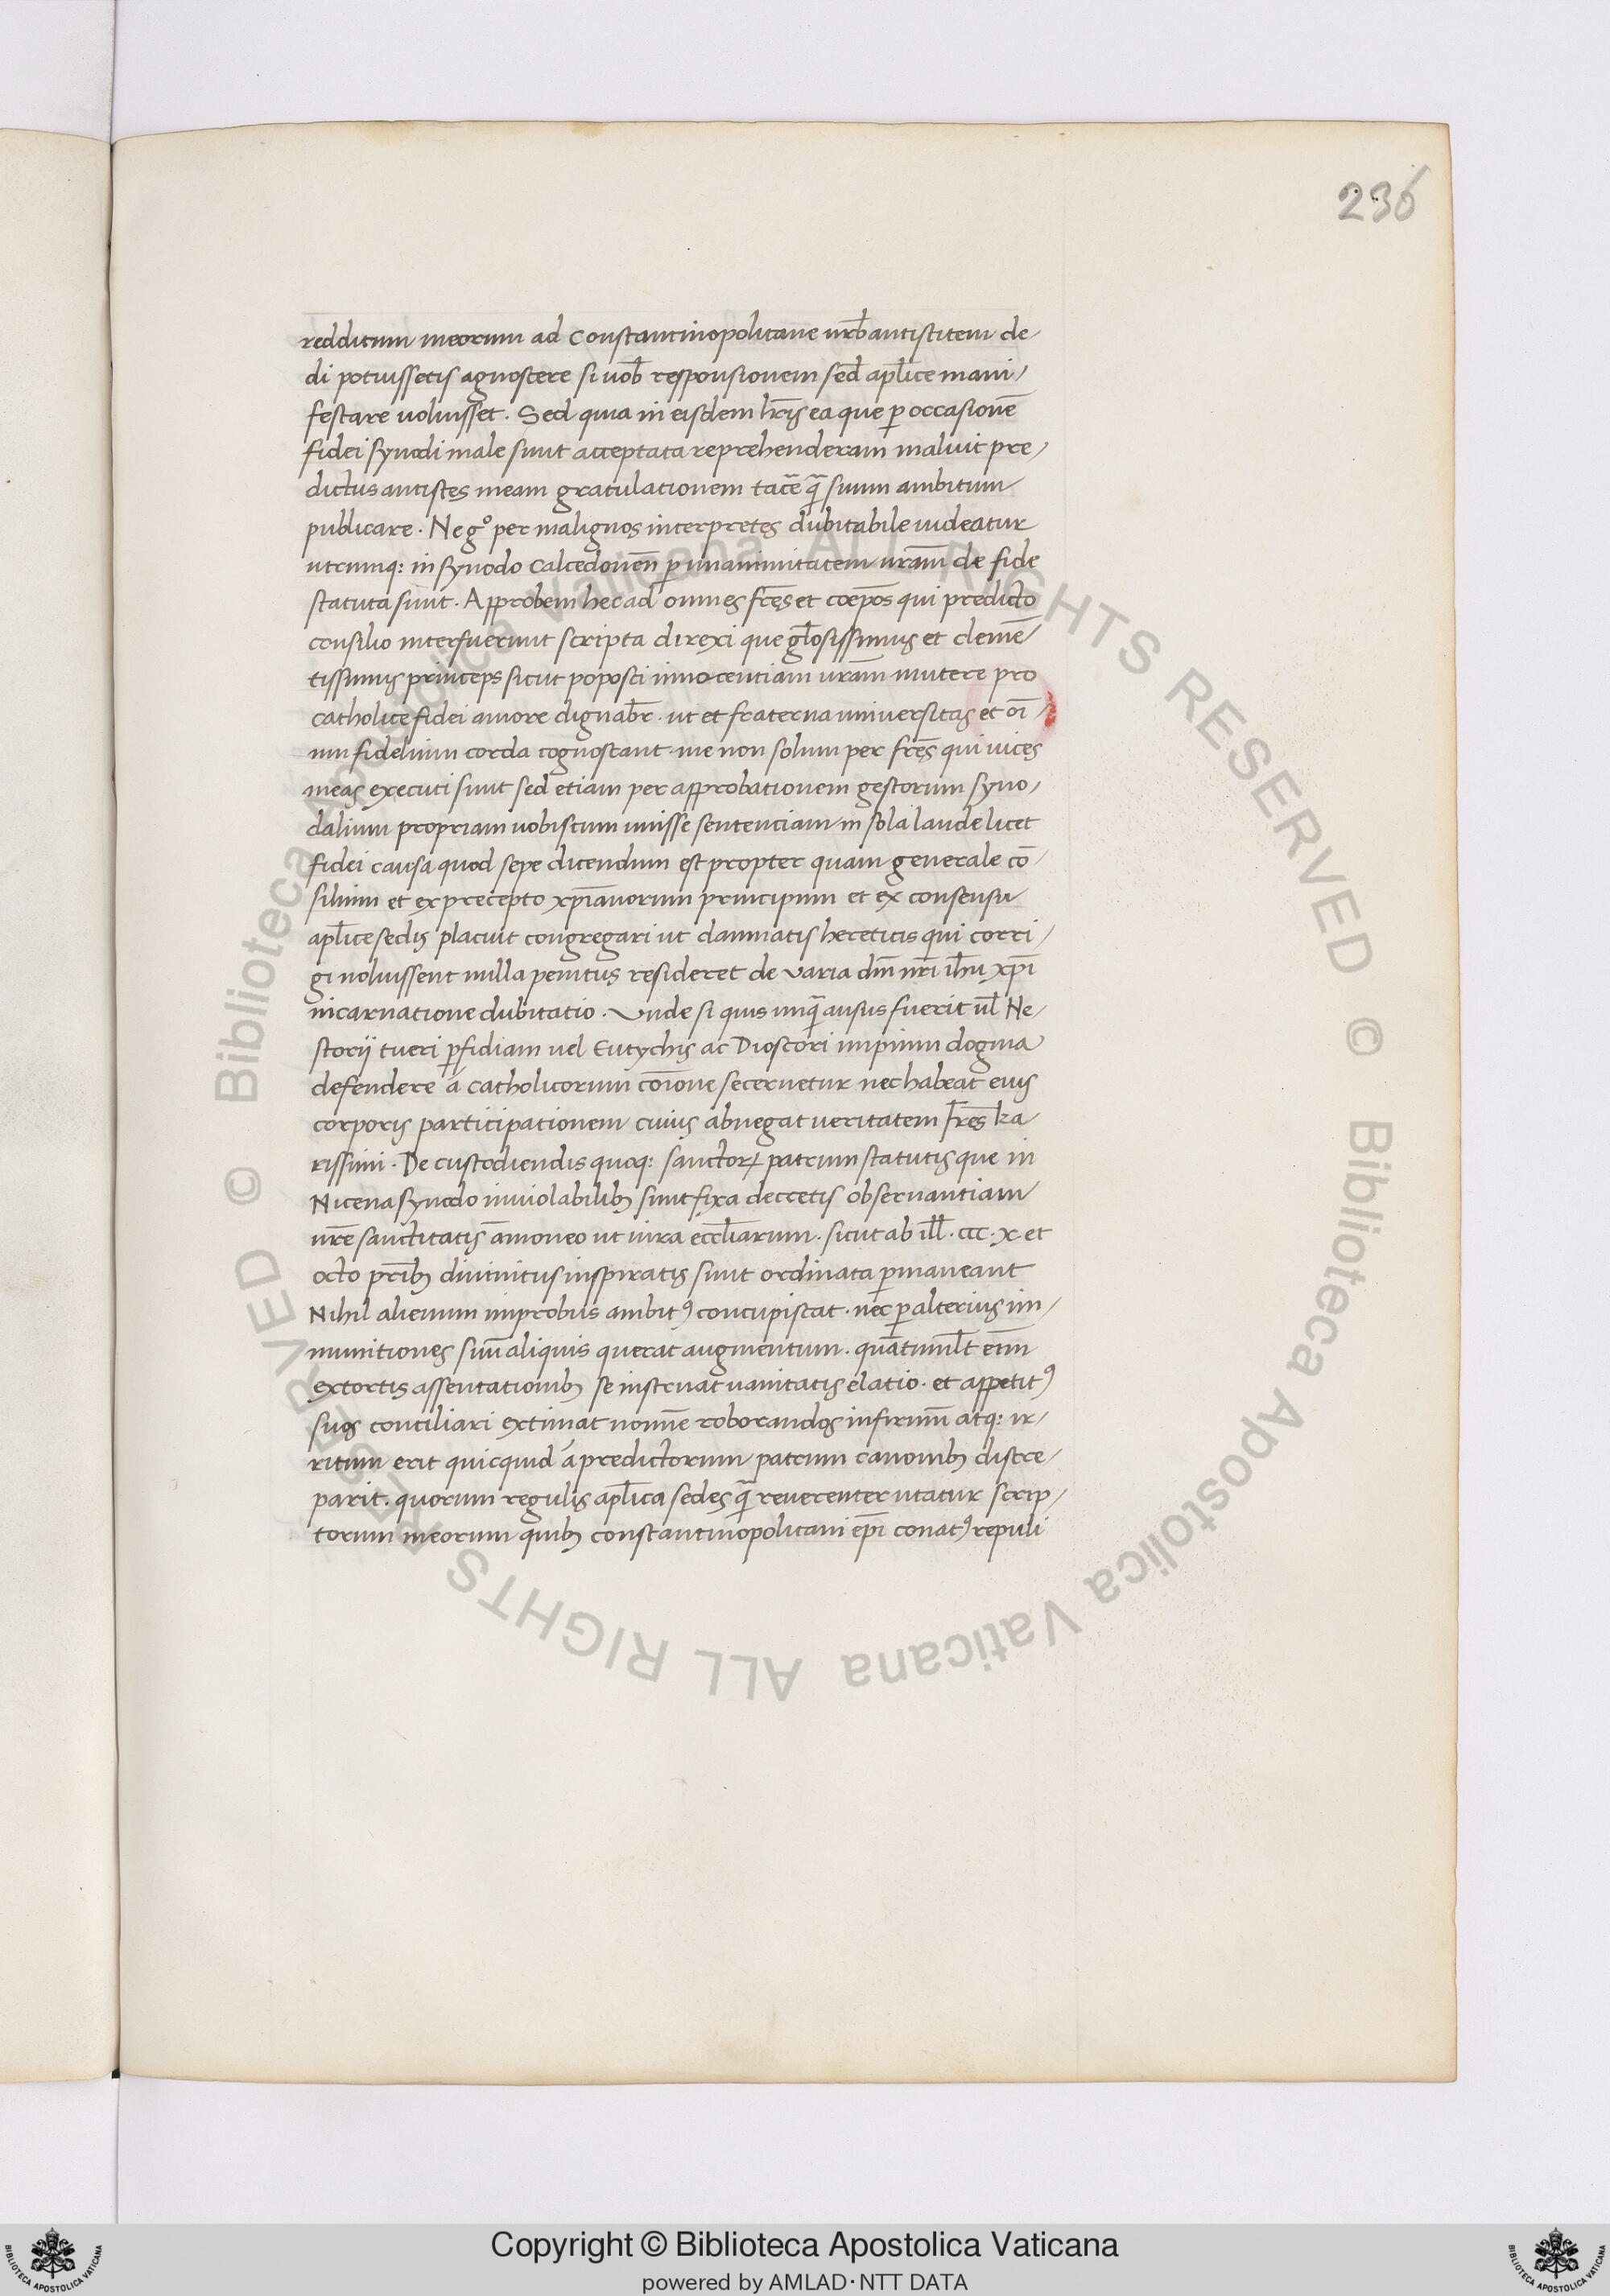 236
redditum meorum ad Constantinopolitane urb̄ antistitem de-
di potuissetis agnoscere si uob̄ responsionem sed̄ apl̄ice mani-
festare uoluisset. Sed quia in eisdem lr̄is ea que ꝑ occasionē
fidei synodi male sunt acceptata reprehenderam maluit pre-
dictus antistes meam gratulationem tacē̄ q̄ suum ambitum
publicare. Ne gº per malignos interpretes dubitabile uideatur
utrumq: in synodo Calcedonen̄ ꝑ unanimitatem ur̄am de fide
statuta sunt. Approbem hec ad omnes fr̄es et coep̄os qui predicto
consilio interfuerunt scripta direxi que gl̄osissimus et clemē
tissimus princeps sicut poposci innocentiam ur̄am mittere pro
catholice fidei amore dignabr̄. ut et fraterna uniuersitas et oī-
um fidelium corda cognoscant me non solum per fr̄es qui uices
meas executi sunt sed etiam per approbationem gestorum syno-
dalium propriam uobiscum unisse sentenciam in sola laude licet
fidei causa quod sepe dicendum est propter quam generale cō-
silium et ex precepto xp̄ianorum principum et ex consensu
apl̄ice sedis placuit congregari ut damnatis hereticis qui corri-
gi noluissent nulla penitus resideret de varia dn̄i nr̄i ih̄u xp̄i
incarnatione dubitatio. Vnde si quis unq̄ ausus fuerit ul̄ Ne-
storij tueri ꝑfidiam uel Eutychis ac Dioscori impium dogma
defendere á catholicorum cōione secernetur nec habeat euis
corporis participationem cuius abnegat ueritatem fr̄es ka
rissimi. De custodiendis quoq: sanctoꝝ patrum statutis que in
Nicena synodo inuiolabilibꝫ sunt fixa decretis obseruantiam
ur̄e sanctitatis āmoneo ut iura eccl̄iarum. sicut ab ill̄. ccc. x. et
octo pr̄ibꝫ diuinitus inspiratis sunt ordinata ꝑmaneant
Nihil alienum improbus ambitꝰ concupiscat. nec ꝑ alterius im-
munitiones suū aliquis querat augmentum. quātuml̄t eīm
extortis assentationibꝫ se instruat uanitatis elatio. et appetitꝰ
suos conciliari extimat nomīe roborandos infirmū atq: ir-
ritum erit quicquid á predictorum patrum canonibꝫ discre-
parit. quorum regulis apl̄ica sedes q̄ reuerenter utatur scrip-
torum meorum quibꝫ constantinopolitani ep̄i conatꝰ repuli
© Biblioteca Apostolica Vaticana ALL RIGHTS RESERVED © Biblioteca Apostolica Vaticana ALL RIGHTS RESERVED
Copyright © Biblioteca Apostolica Vaticana
powered by AMLAD·NTT DATA
BIBLIOTECA APOSTOLICA VATICANA
BIBLIOTECA APOSTOLICA VATICANA